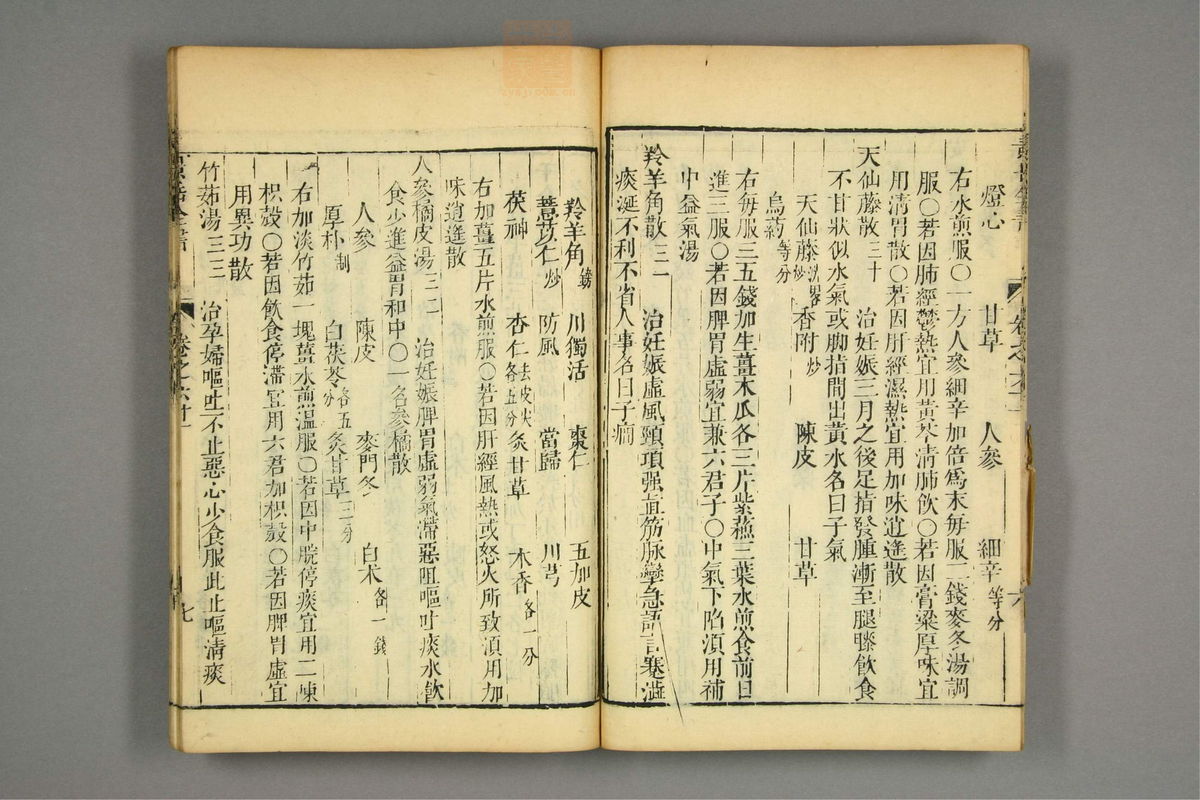 燈心 甘草 人參 細辛等分
右水煎服〇一方人參細辛加倍爲末每服二錢麥冬湯調
服〇若因肺經鬱熱宜用黃芩清肺飲〇若因膏粱厚味宜
用清胃散〇若因肝經濕熱宜用加味逍遙散
天仙藤散三十 治妊娠三月之後足指發腫漸至腿膝飲食
不甘狀似水氣或脚指間出黃水名曰子氣
天仙藤洗略炒 香附炒 陳皮 甘草
烏药等分
右每服三五錢加生薑木瓜各三片紫蘓三葉水煎食前日
進三服〇若因脾胃虛弱宜兼六君子〇中氣下陷須用補
中益氣湯
羚羊角散三一 治妊娠虛風頸項强直筋脉攣急語言蹇澁
痰涎不利不省人事名曰子癎
羚羊角鎊 川獨活 棗仁 五加皮
薏苡仁炒 防風 當歸 川芎
茯神 杏仁去皮尖各五分 炙甘草 木香各一分
右加薑五片水煎服〇若因肝經風熱或怒火所致須用加
味逍遙散
人參橘皮湯三二 治妊娠脾胃虛弱氣滯惡阻嘔吐痰水飲
食少進益胃和中〇一名參橘散
人參 陳皮 麥門冬 白术各一錢
厚朴制 白茯苓各五分 炙甘草三分
右加淡竹茹一塊薑水煎温服〇若因中脘停痰宜用二陳
枳殼〇若因飲食停滯宜用六君加枳殼〇若因脾胃虛宜
用異功散
竹茹湯三三 治孕婦嘔吐不止惡心少食服此止嘔清痰
卷之六十一
六
卷之六十一
七